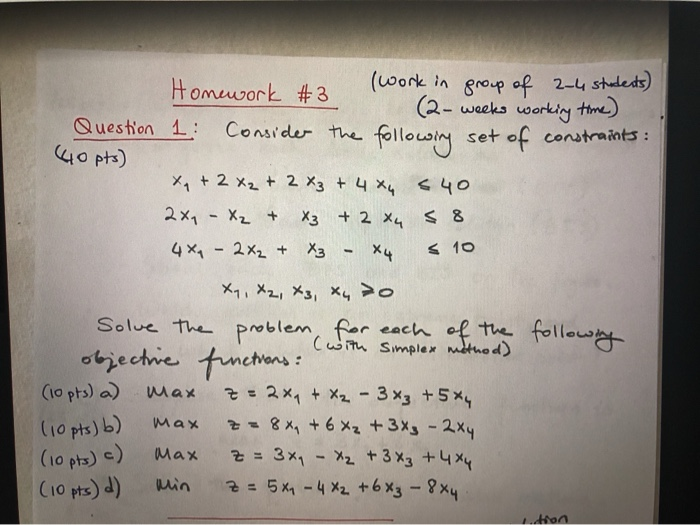 Homework #3 (work in group of 2-4 students)
(2-weeks working time)
Question 1: Consider the following set of constraints:
(40 pts)
x₁ + 2x₂ + 2x₃ + 4x₄ ≤ 40
2x₁ - x₂ + x₃ + 2x₄ ≤ 8
4x₁ - 2x₂ + x₃ - x₄ ≤ 10
x₁, x₂, x₃, x₄ ≥ 0
Solve the problem for each of the following
(with simplex method)
objective functions:
(10 pts) a) Max z = 2x₁ + x₂ - 3x₃ + 5x₄
(10 pts) b) Max z = 8x₁ + 6x₂ + 3x₃ - 2x₄
(10 pts) c) Max z = 3x₁ - x₂ + 3x₃ + 4x₄
(10 pts) d) Min z = 5x₁ - 4x₂ + 6x₃ - 8x₄